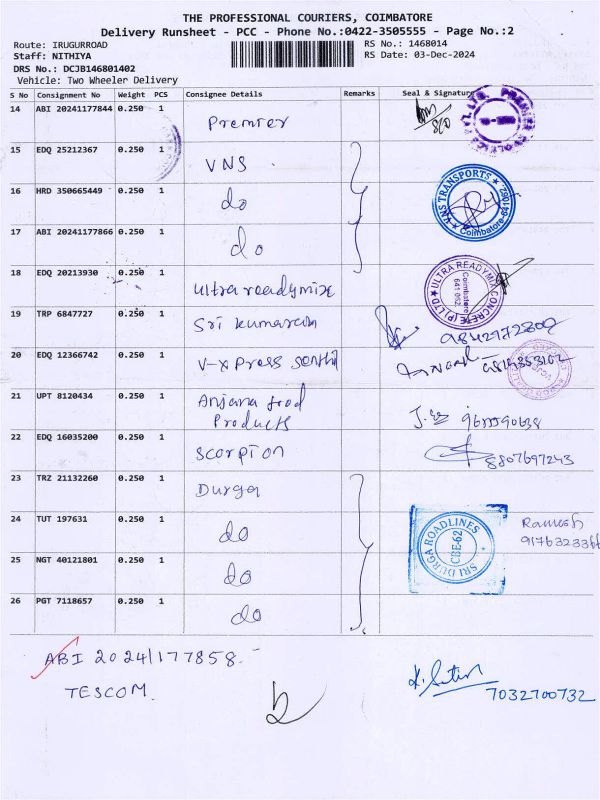 THE PROFESSIONAL COURIERS, COIMBATORE
Delivery Runsheet - PCC - Phone No.:0422-3505555 - Page No.:2
Route: IRUGURROAD
RS No.: 1468014
Staff: NITHIYA
RS Date: 03-Dec-2024
DRS No.: DCJB146801402
Vehicle: Two Wheeler Delivery
S No Consignment No Weight PCS Consignee Details Remarks Seal & Signature
14 ABI 20241177844 0.250 1 Premier
15 EDQ 25212367 0.250 1 VNS
16 HRD 350665449 0.250 1 do
VNS TRANSPORTS
17 ABI 20241177866 0.250 1 do
18 EDQ 20213930 0.250 1 Ultra readymix
ULTRA READYMIX CONCRETE (P) LTD
Coimbatore 641 062.
19 TRP 6847727 0.250 1 Sri Kumaran
20 EDQ 12366742 0.250 1 V-xpress Senthil
21 UPT 8120434 0.250 1 Anjana food
Products
22 EDQ 16035200 0.250 1 Scorpion 8807697243
23 TRZ 21132260 0.250 1 Durga
24 TUT 197631 0.250 1 do
SRI DURGA ROADLINES
CBE-62
Ramesh
25 NGT 40121801 0.250 1 do
26 PGT 7118657 0.250 1 do
ABI 2024/177858.
TESCOM.
7032700732